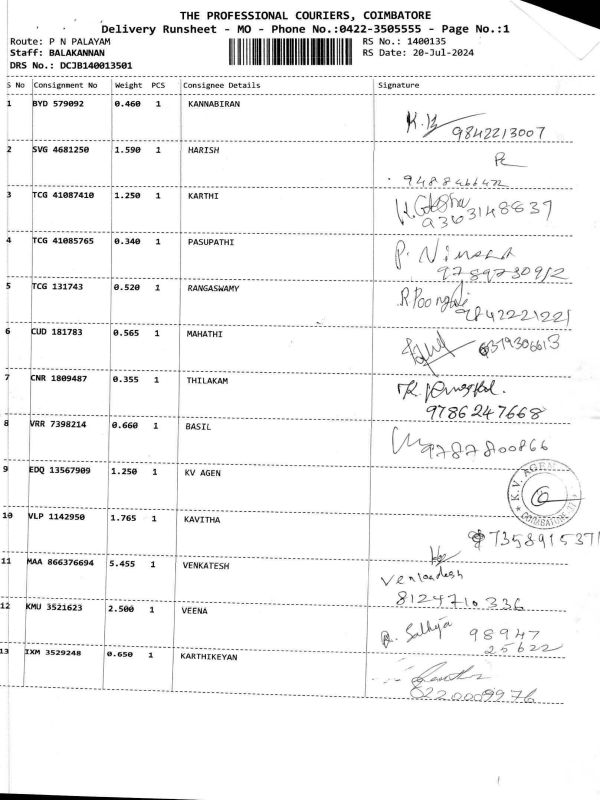 THE PROFESSIONAL COURIERS, COIMBATORE
Delivery Runsheet - MO - Phone No.:0422-3505555 - Page No.:1
Route: P N PALAYAM RS No.: 1400135
Staff: BALAKANNAN RS Date: 20-Jul-2024
DRS No.: DCJB140013501
S No Consignment No Weight PCS Consignee Details Signature
1 BYD 579092 0.460 1 KANNABIRAN
9842213007
2 SVG 4681250 1.590 1 HARISH
3 TCG 41087410 1.250 1 KARTHI
9363148837
4 TCG 41085765 0.340 1 PASUPATHI
P.
9789730912
5 TCG 131743 0.520 1 RANGASWAMY
9842221221
6 CUD 181783 0.565 1 MAHATHI
6379306613
7 CNR 1809487 0.355 1 THILAKAM
9786247668
8 VRR 7398214 0.660 1 BASIL
9787800866
9 EDQ 13567909 1.250 1 KV AGEN
K.V. AGEN
COIMBATORE
10 VLP 1142950 1.765 1 KAVITHA
7358915371
11 MAA 866376694 5.455 1 VENKATESH
Venkatesh
8124710336
12 KMU 3521623 2.500 1 VEENA
98947
25622
13 IXM 3529248 0.650 1 KARTHIKEYAN